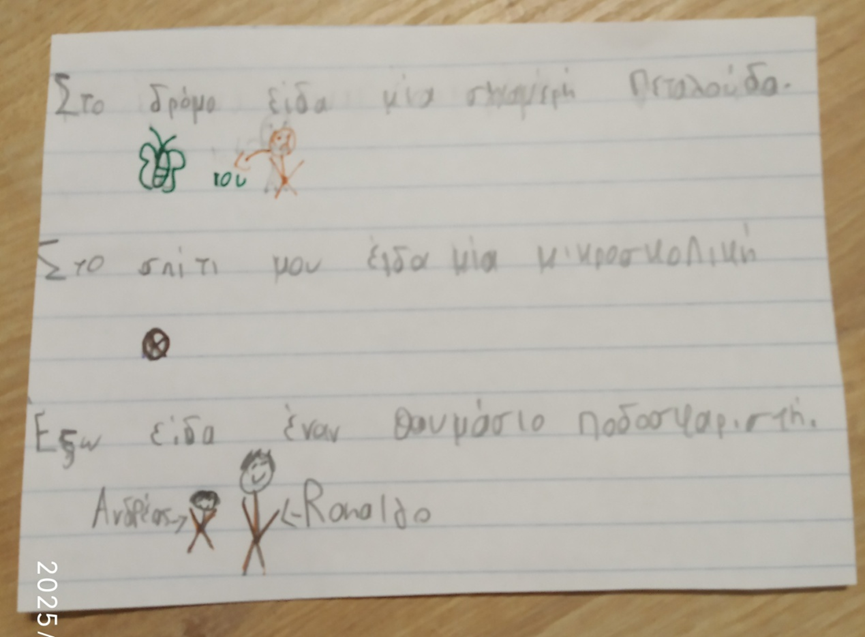 Στο δρόμο είδα μία πεταλούδα.
του
Στο σπίτι μου είδα μία μικροσκοπική
Εξω είδα έναν θαυμάσιο ποδοσφαριστή.
Ανδρέας→ ←Ronaldo
2025/